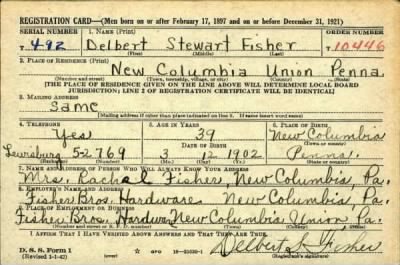 REGISTRATION CARD—(Men born on or after February 17, 1897 and on or before December 31, 1921)
SERIAL NUMBER 1. NAME (Print) ORDER NUMBER
T 492 Delbert Stewart Fisher T10446
(First) (Middle) (Last)
2. PLACE OF RESIDENCE (Print)
New Columbia Union Penna
(Number and street) (Town, township, village, or city) (County) (State)
[THE PLACE OF RESIDENCE GIVEN ON THE LINE ABOVE WILL DETERMINE LOCAL BOARD
JURISDICTION; LINE 2 OF REGISTRATION CERTIFICATE WILL BE IDENTICAL]
3. MAILING ADDRESS
Same
(Mailing address if other than place indicated on line 2. If same insert word same)
4. TELEPHONE 5. AGE IN YEARS 6. PLACE OF BIRTH
Yes 39 New Columbia
DATE OF BIRTH (Town or county)
Lewisburg 5-2769 3 12 1902 Penna.
7. NAME AND ADDRESS OF PERSON WHO WILL ALWAYS KNOW YOUR ADDRESS
Mrs. Rachel Fisher, New Columbia, Pa.
8. EMPLOYER'S NAME AND ADDRESS
Fisher Bros. Hardware New Columbia, Pa.
9. PLACE OF EMPLOYMENT OR BUSINESS
Fisher Bros. Hardware New Columbia Union, Pa.
(Number and street or R. F. D. number) (Town) (County) (State)
I AFFIRM THAT I HAVE VERIFIED ABOVE ANSWERS AND THAT THEY ARE TRUE.
D. S. S. Form 1
(Revised 1-1-42) (over)
Delbert S. Fisher